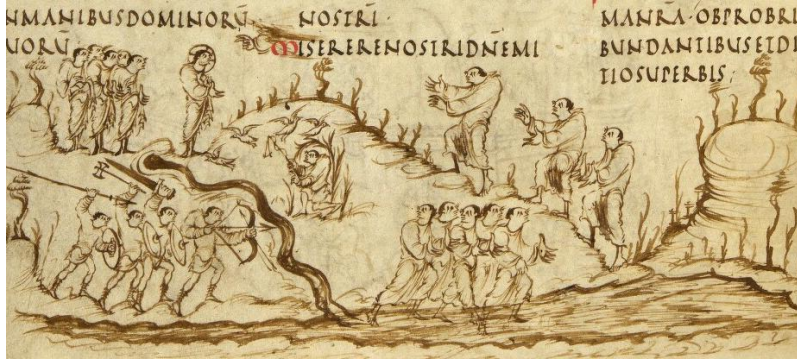 NMANIBUSDOMINORŪ·
UORŪ
NOSTRI·
MISERERENOSTRIDÑEMI
MANRA·OBPROBRI
BUNDANTIBUSETDE
TIOSUPERBIS;